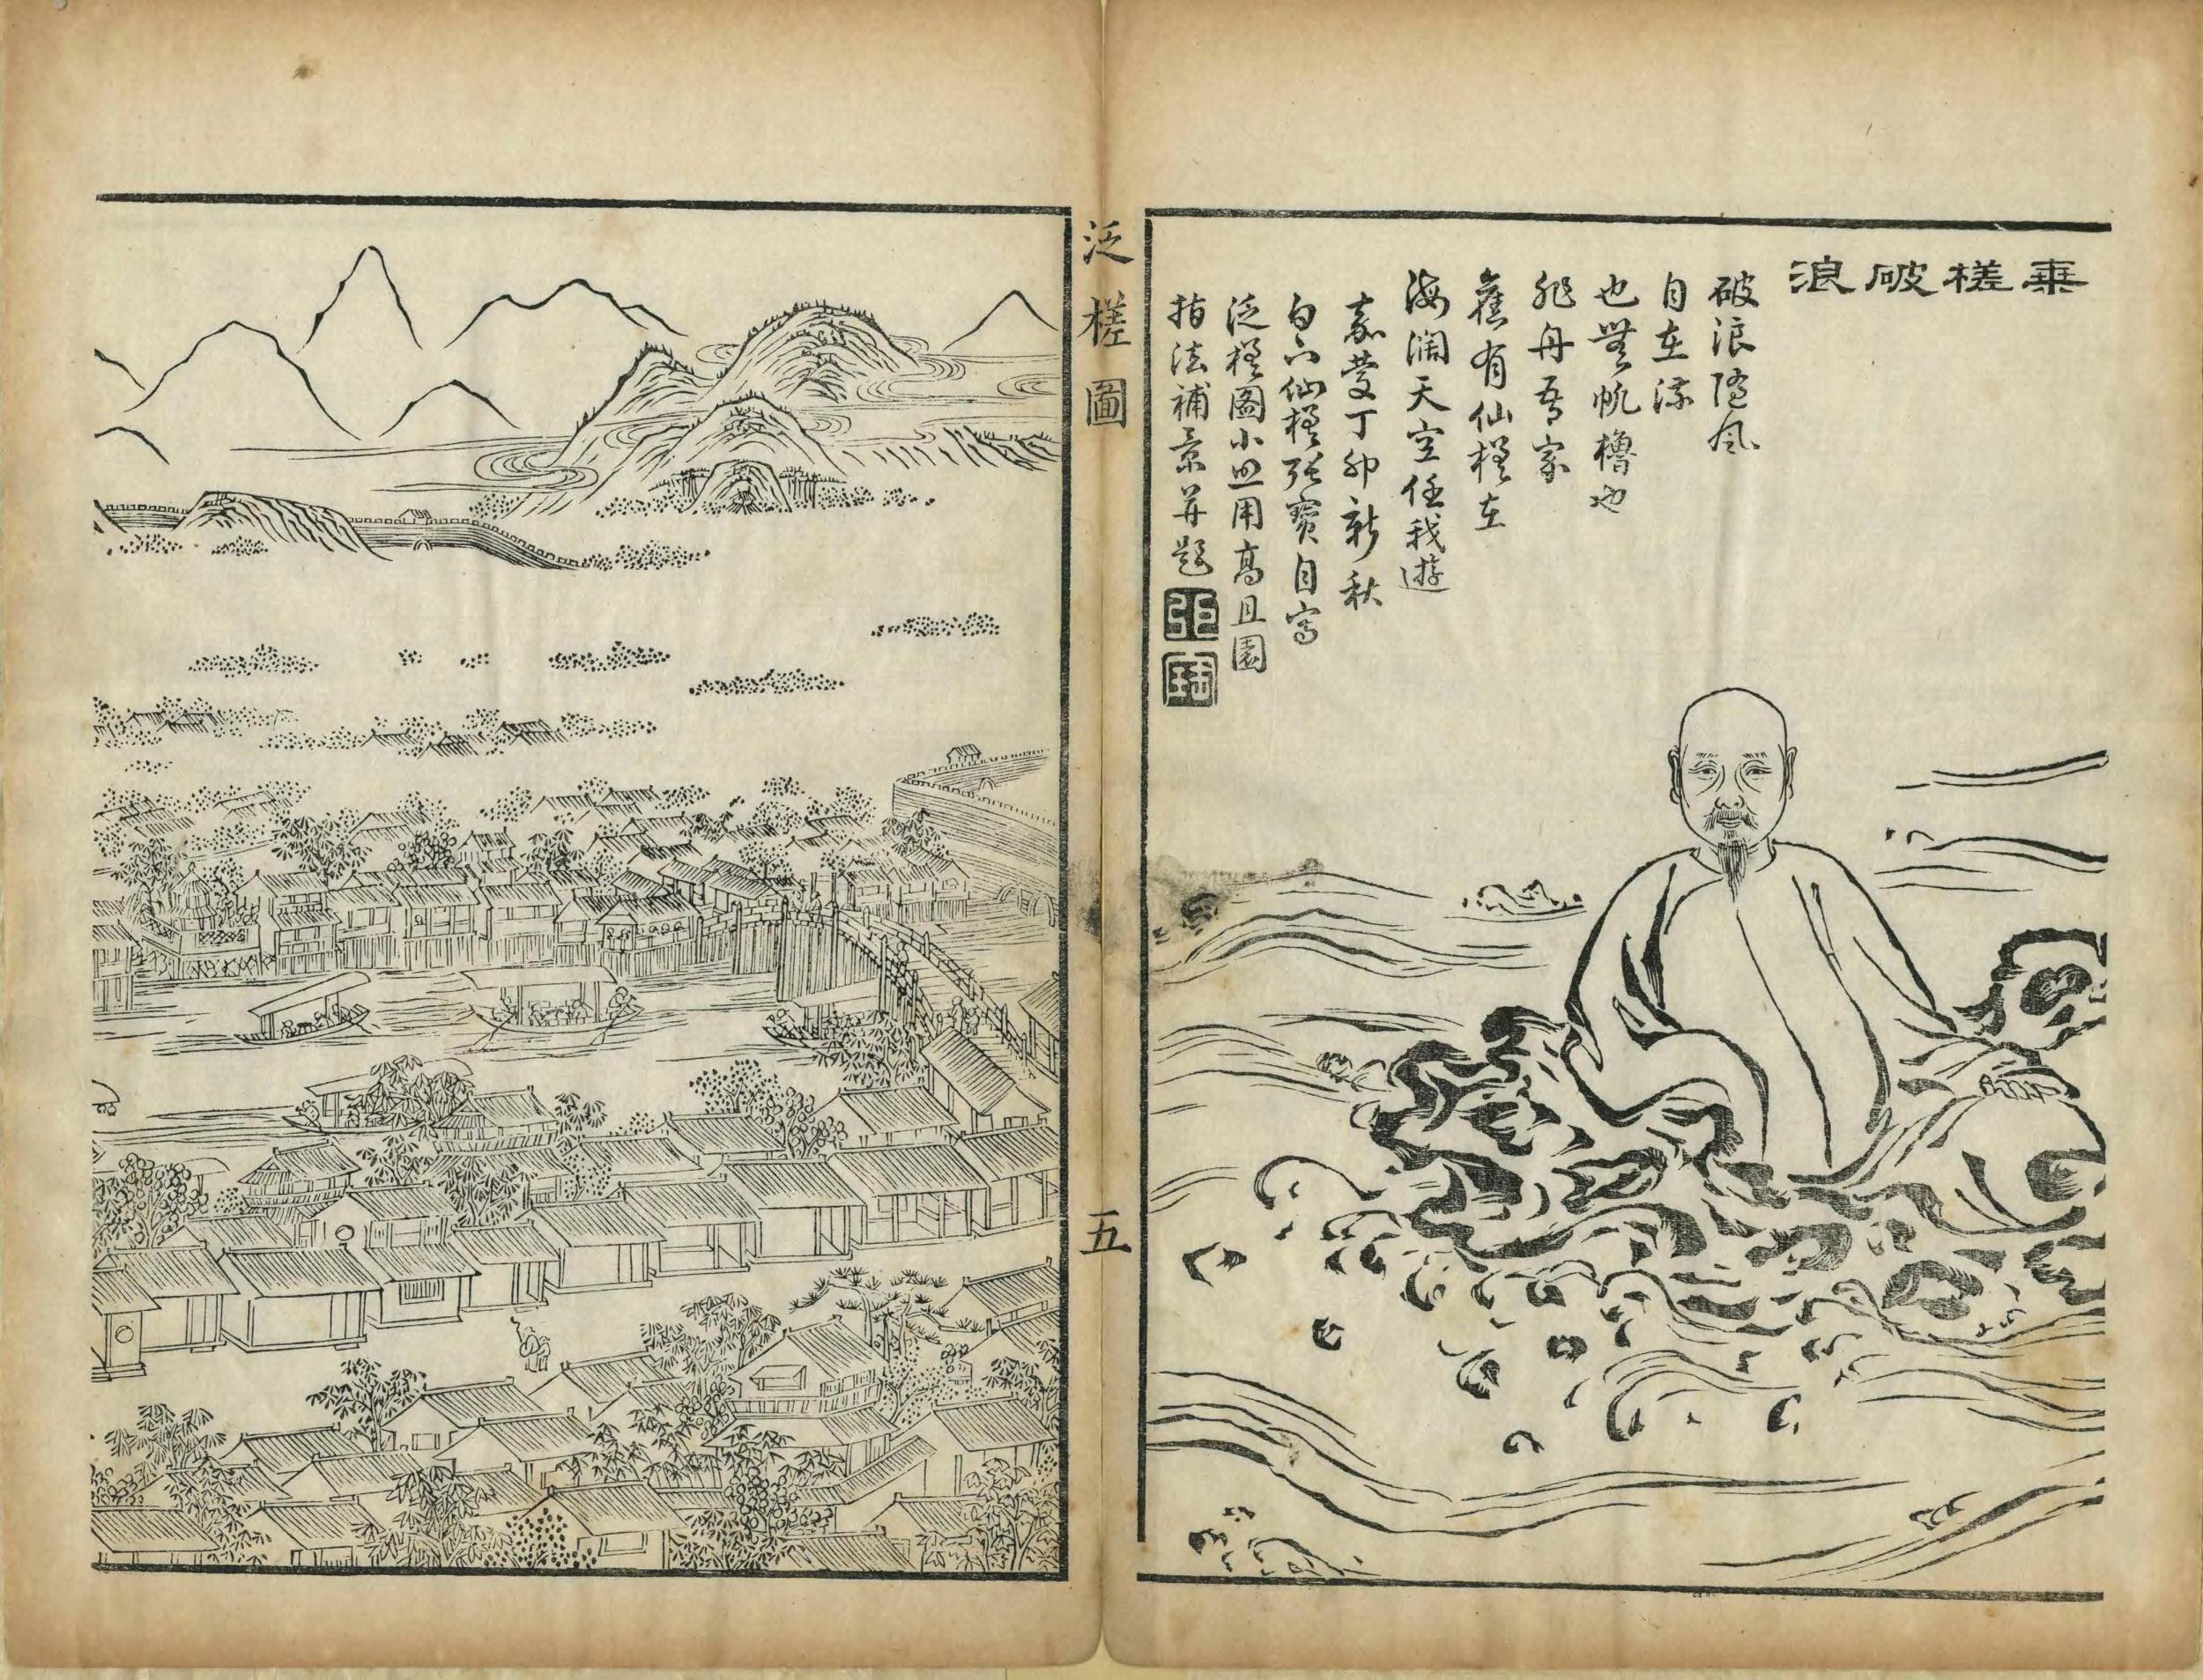 乘槎破浪
破浪隨風
自在流
也無帆櫓也
非舟吾家
舊有仙槎在
海濶天空任我遊
嘉慶丁卯新秋
白下仙槎張寶自寫
泛槎圖小照用高且園
指法補景并題
泛槎圖
五